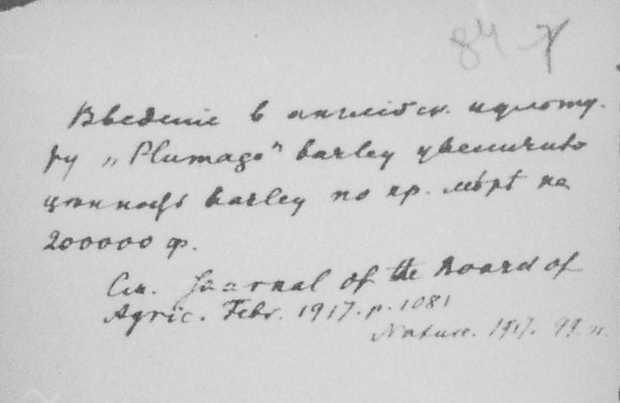 84
Введеніе в английск. культу-
ру „Plumage" barley увеличило
цѣнность barley по кр. мѣрѣ на
200000 ф.
См. Journal of the Board of
Agric. Febr. 1917. p. 1081
Nature. 1917. 99.